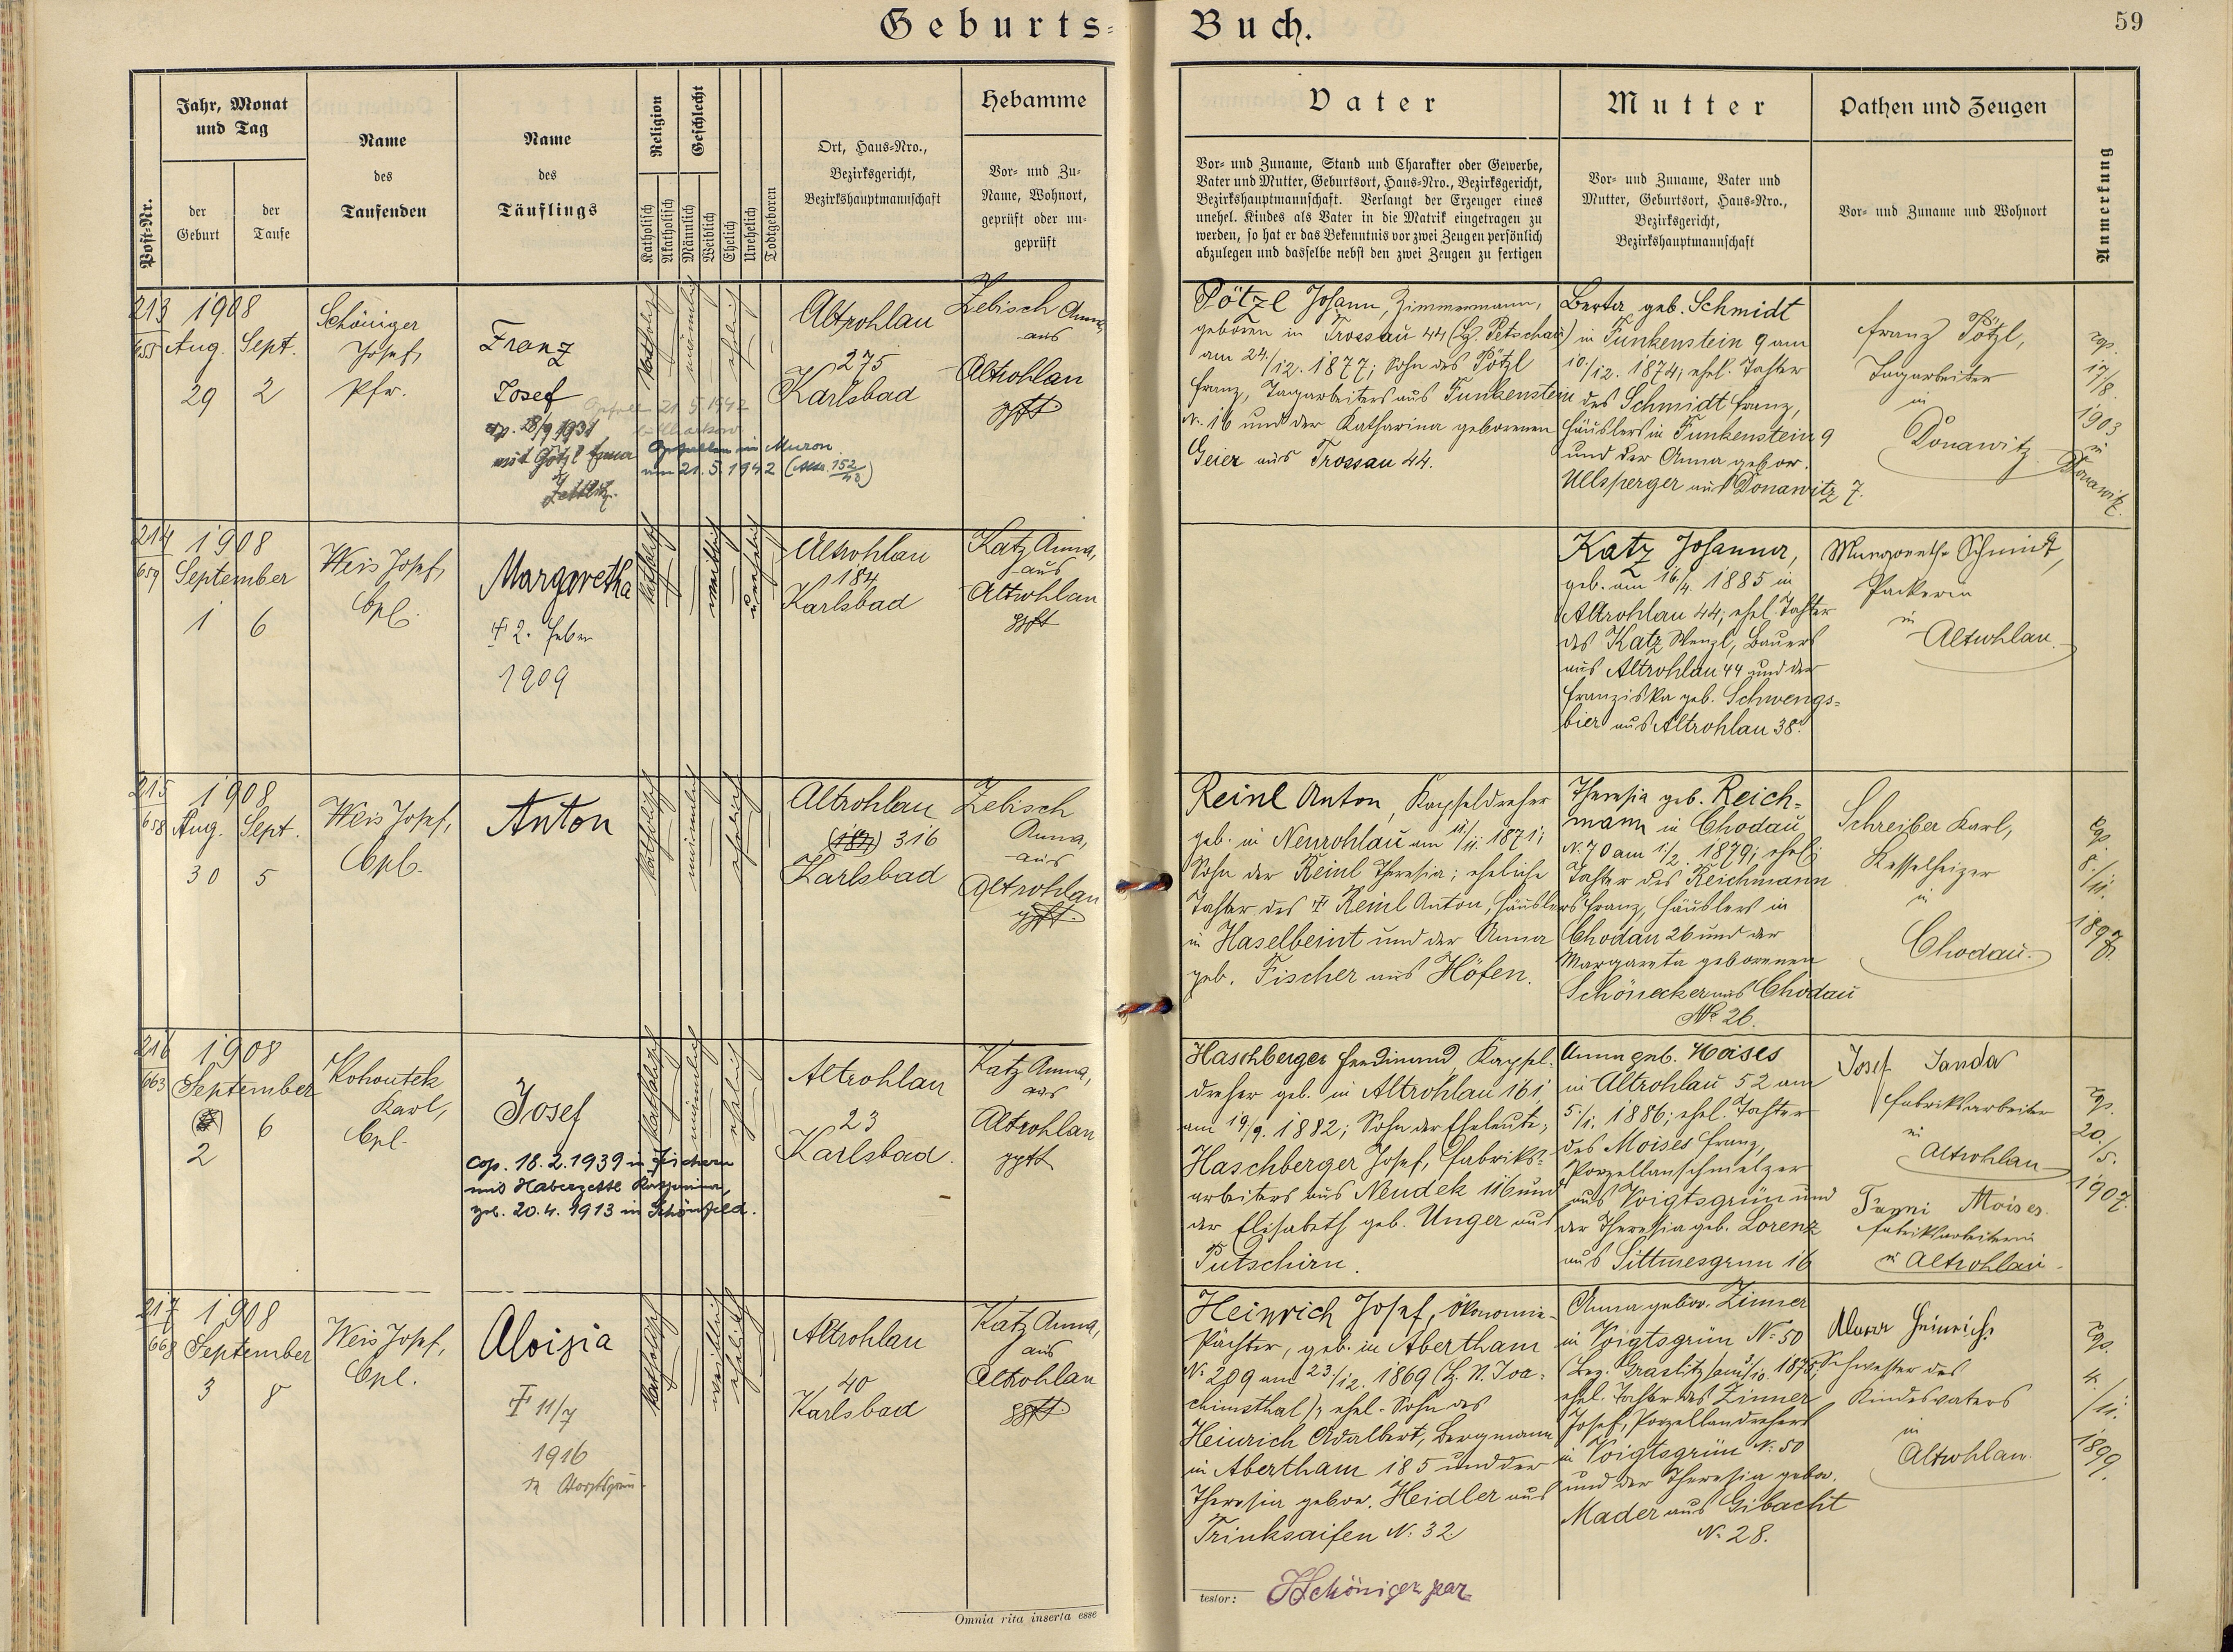 Geburts-Buch.
59
Post-Nr.
Jahr, Monat
und Tag
der
Geburt
der
Taufe
Name
des
Taufenden
Name
des
Täuflings
Religion
Katholisch
Akatholisch
Geschlecht
Männlich
Weiblich
Ehelich
Unehelich
Todtgeboren
Ort, Haus-Nro.,
Bezirksgericht,
Bezirkshauptmannschaft
Hebamme
Vor- und Zu-
Name, Wohnort,
geprüft oder un-
geprüft
Vater
Vor- und Zuname, Stand und Charakter oder Gewerbe,
Vater und Mutter, Geburtsort, Haus-Nro., Bezirksgericht,
Bezirkshauptmannschaft. Verlangt der Erzeuger eines
unehel. Kindes als Vater in die Matrik eingetragen zu
werden, so hat er das Bekenntnis vor zwei Zeugen persönlich
abzulegen und dasselbe nebst den zwei Zeugen zu fertigen
Mutter
Vor- und Zuname, Vater und
Mutter, Geburtsort, Haus-Nro.,
Bezirksgericht,
Bezirkshauptmannschaft
Pathen und Zeugen
Vor- und Zuname und Wohnort
Anmerkung
213
1908
Aug. Sept.
29 2
Schöniger
Josef,
Pfr.
Franz
Josef
cop. 28/9 1931
Gefallen im Muron
am 21.5.1942
katholisch
männlich
ehelich
Altrohlau
275
Karlsbad
Zebisch Anna,
aus
Altrohlau
gpft
Pötzl Johann, Zimmermann,
geboren in Trossau 44 (Bz. Petschau)
am 24./12. 1877; Sohn des Pötzl
Franz, Tagarbeiters aus Funkenstein
N. 16 und der Katharina geborenen
Geier aus Trossau 44.
Berta geb. Schmidt
in Funkenstein 9 am
10./12. 1874; ehel. Tochter
des Schmidt Franz,
Häuslers in Funkenstein 9
und der Anna gebor.
Ullsperger aus Donawitz 7.
Franz Pötzl,
Tagarbeiter
in
Donawitz
cop.
17/8.
1903
in
Donawitz.
214
659
1908
September
1 6
Weis Josef,
Cpl.
Margaretha
† 2. Feber
1909
katholisch
weiblich
unehelich
Altrohlau
184
Karlsbad
Katz Anna,
aus
Altrohlau
gpft
Katz Johanna,
geb. am 16/4. 1885 in
Altrohlau 44; ehel. Tochter
des Katz Wenzl, Bauers
aus Altrohlau 44 und der
Franziska geb. Schwengs-
bier aus Altrohlau 38.
Margareth Schmidt,
Packerin
in
Altrohlau.
215
658
1908
Aug. Sept.
30 5
Weis Josef,
Cpl.
Anton
katholisch
männlich
ehelich
Altrohlau
(184) 316
Karlsbad
Zebisch
Anna,
aus
Altrohlau
gpft
Reinl Anton, Kapseldreher
geb. in Neurohlau am 11/11. 1871;
Sohn der Reinl Theresia; eheliche
Tochter des † Reinl Anton, Häuslers
in Haselbeint und der Anna
geb. Fischer aus Höfen.
Theresia geb. Reich-
mann in Chodau
N. 70 am 1/2. 1879; ehel.
Tochter des Reichmann
Franz, Häuslers in
Chodau 26 und der
Margareta geborenen
Schönecker aus Chodau
No 26.
Schreiber Karl,
Kesselheizer
in
Chodau.
cop.
8./11.
216
663
1908
September
6
2
Kohoutek
Karl,
Cpl.
Josef
Cop. 18.2.1939 in Fischern
mit Haberzettl Katharina,
geb. 20.4.1913 in Schönfeld.
katholisch
männlich
ehelich
Altrohlau
23
Karlsbad.
Katz Anna,
aus
Altrohlau
gpft
Haschberger Ferdinand, Kapsel-
dreher geb. in Altrohlau 161,
am 19/9. 1882; Sohn der Eheleute;
Haschberger Josef, Fabriks-
arbeiters aus Neudek 116 und
der Elisabeth geb. Unger aus
Putschirn.
Anna geb. Moises
in Altrohlau 52 am
5./1. 1886; ehel. Tochter
des Moises Franz,
Porzellanschmelzer
aus Voigtsgrün und
der Theresia geb. Lorenz
aus Sittmesgrün 16
Josef Janda
Fabriksarbeiter
in
Altrohlau
Fanni Moises.
Fabriksarbeiterin
in Altrohlau.
cop.
20./5.
1907.
217
668
1908
September
3 8
Weis Josef,
Cpl.
Aloisia
† 11/7
1916
in Voigtsgrün
katholisch
weiblich
ehelich
Altrohlau
40
Karlsbad
Katz Anna,
aus
Altrohlau
gpft
Heinrich Josef, Ökonomie-
Pächter, geb. in Abertham
No 209 am 23./12. 1869 (B. N. Joa-
chimsthal); ehel. Sohn des
Heinrich Adalbert, Bergmann
in Abertham 185 und der
Theresia gebor. Heidler aus
Trinksaifen N. 32
Anna gebor. Zinner
in Voigtsgrün No 50
(Bez. Graslitz) am 3/10. 1875;
ehel. Tochter des Zinner
Josef, Porzellandrehers
in Voigtsgrün N. 50
und der Theresia gebor.
Mader aus Gibacht
No 28.
Heinrich
Schwester des
Kindesvaters
in
Altrohlau.
cop.
4./11.
1899.
Omnia rita inserta esse
testor:
JSchöniger par.